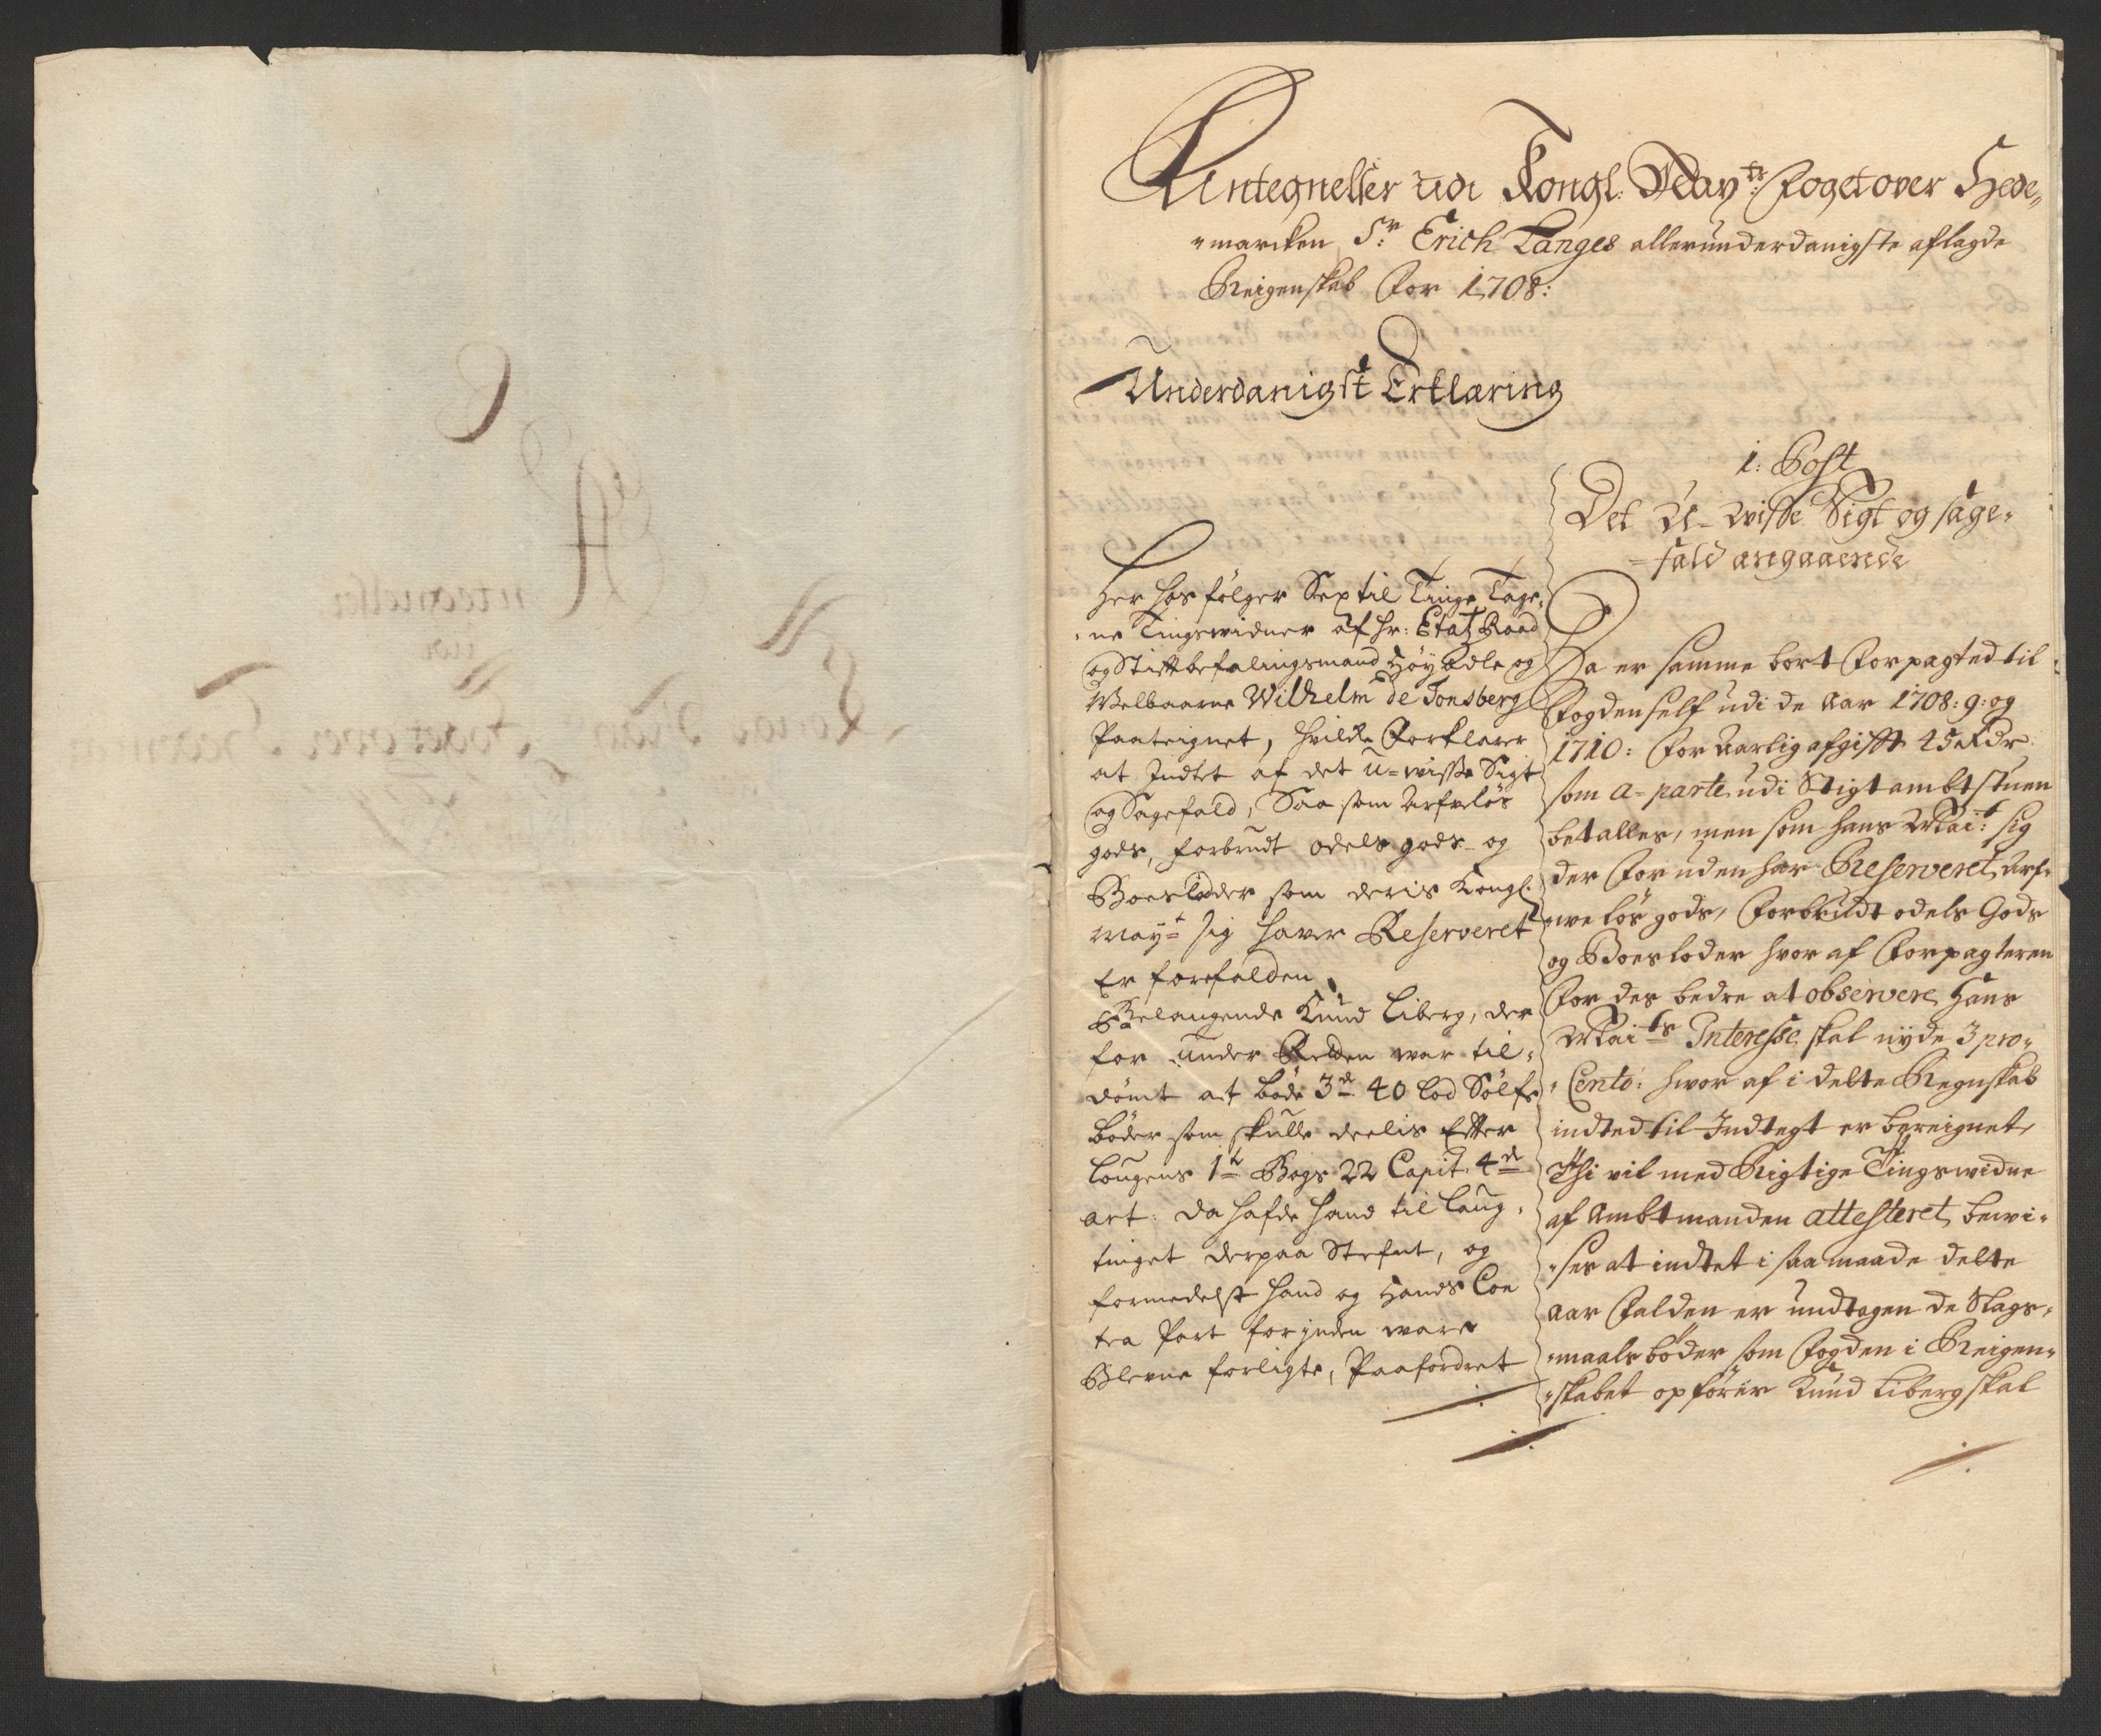 Antegnelser udi Kongl. May:ts Foget over Hede„
„marcken Sr. Erich Langes allerunderdanigste aflagde
Reigenskab for 1708:
Underdanigst Erklæring
Her hos følger Sex til Tinge Tage„
„ne Tingswidner af Hr: Etatz Raad
og Stiftbefalingsmand HöyÆdle og
Welbaarne Wilhelm de Tonsberg
Paateignet, hvilke Forklarer
at Indtet af det u-wisse Sigt
og Sagefald, Saa som Arfveløs
gods, forbrudt odels gods og
Boeslodder som deris Kongl.
May:t sig haver Reserveret
Er forefalden,
Belangende Knud Liberg, der
for under Retten war til„
dömt atböde 3de 40 lod Sölfs
böder som skulle deelis Efter
lougens 1te Bogs 22 Capit. 4de
art: da hafde hand til laug„
tinget derpaa Stefnt, og
formedelst hand og Hands Con
tra Part forinden ware
Blevne forligte, Paafordret
1: Post
Det U-wisse Sigt og sage„
„fald angaaende
Da er samme bort Forpagted til
Fogden self udi de Aar 1708: 9: og
1710: For Aarlig afgifft 45 Rdr.
som a-parte udi Stigtambtstuen
betalles, men som hans Mai:t sig
der For uden har Reserveret, Arf„
„we lös gods, Forbrudt odels Gods
og Boesloder hvor af Forpagteren
For des bedre at observere Hans
Mai:ts Interesse skal nyde 3 pro„
„Cento: hvor af i dette Regnskab
indted til Indtegt er bereignet,
Thi vil med Rigtige Tingswidne
af Ambtmanden attesteret, bewi„
„ses at indtet i saa maade dette
Aar Falden er undtagen de Slags„
„maals böder som Fogden i Reigen„
„skabet opförer Knud Liberg skal